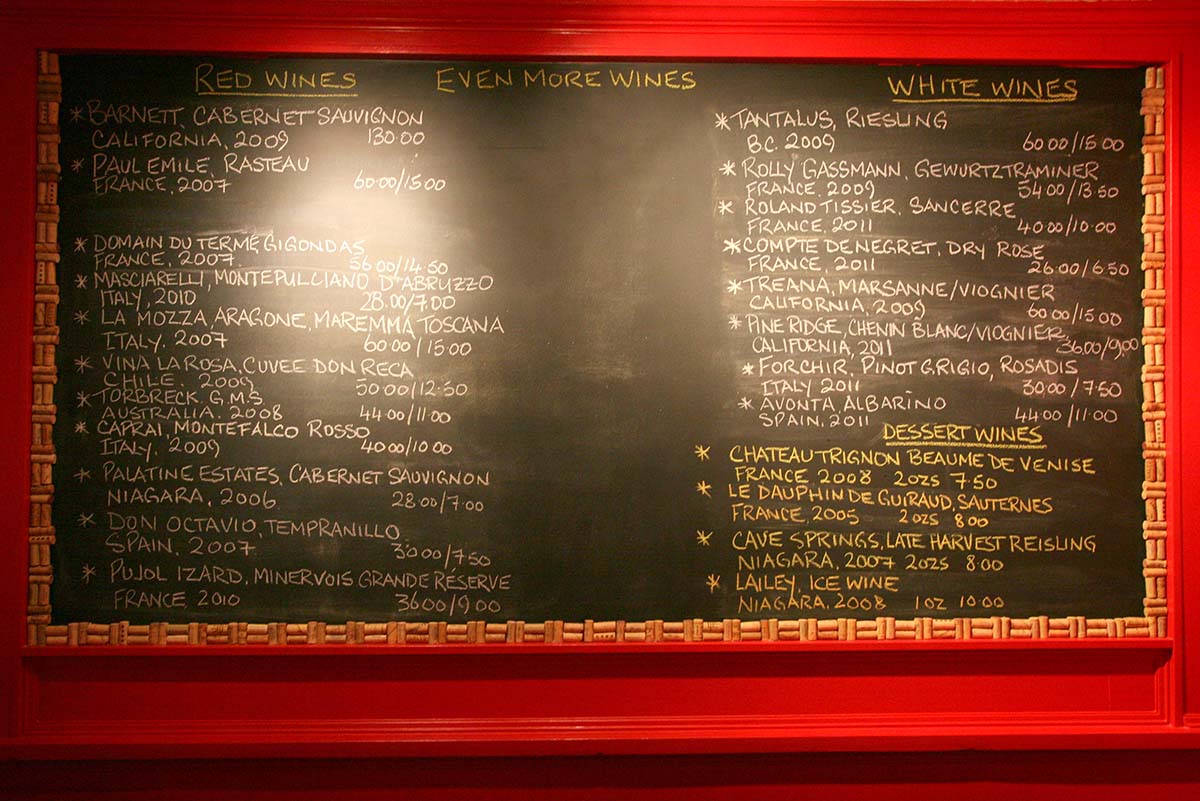 RED WINES
* BARNETT, CABERNET SAUVIGNON
CALIFORNIA, 2009 130.00
* PAUL EMILE, RASTEAU
FRANCE, 2007 60.00/15.00
* DOMAIN DU TERME, GIGONDAS
FRANCE, 2007 56.00/14.50
* MASCIARELLI, MONTEPULCIANO D'ABRUZZO
ITALY, 2010 28.00/7.00
* LA MOZZA, ARAGONE, MAREMMA TOSCANA
ITALY, 2007 60.00/15.00
* VINA LA ROSA, CUVEE DON RECA
CHILE, 2009 50.00/12.50
* TORBRECK, G.M.S.
AUSTRALIA, 2008 44.00/11.00
* CAPRAI, MONTEFALCO ROSSO
ITALY, 2009 40.00/10.00
* PALATINE ESTATES, CABERNET SAUVIGNON
NIAGARA, 2006 28.00/7.00
* DON OCTAVIO, TEMPRANILLO
SPAIN, 2007 30.00/7.50
* PUJOL IZARD, MINERVOIS GRANDE RESERVE
FRANCE, 2010 36.00/9.00
EVEN MORE WINES
WHITE WINES
* TANTALUS, RIESLING
BC. 2009 60.00/15.00
* ROLLY GASSMANN, GEWURTZTRAMINER
FRANCE, 2009 54.00/13.50
* ROLAND TISSIER, SANCERRE
FRANCE, 2011 40.00/10.00
* COMPTE DE NEGRET, DRY ROSE
FRANCE, 2011 26.00/6.50
* TREANA, MARSANNE/VIOGNIER
CALIFORNIA, 2009 60.00/15.00
* PINE RIDGE, CHENIN BLANC/VIOGNIER
CALIFORNIA, 2011 36.00/9.00
* FORCHIR, PINOT GRIGIO, ROSADIS
ITALY 2011 30.00/7.50
* AVONTA, ALBARINO
SPAIN, 2011 44.00/11.00
DESSERT WINES
* CHATEAU TRIGNON BEAUME DE VENISE
FRANCE 2008 2OZS 7.50
* LE DAUPHIN DE GUIRAUD, SAUTERNES
FRANCE, 2005 2OZS 8.00
* CAVE SPRINGS, LATE HARVEST REISLING
NIAGARA, 2007 2OZS 8.00
* LAILEY, ICE WINE
NIAGARA, 2008 1OZ 10.00